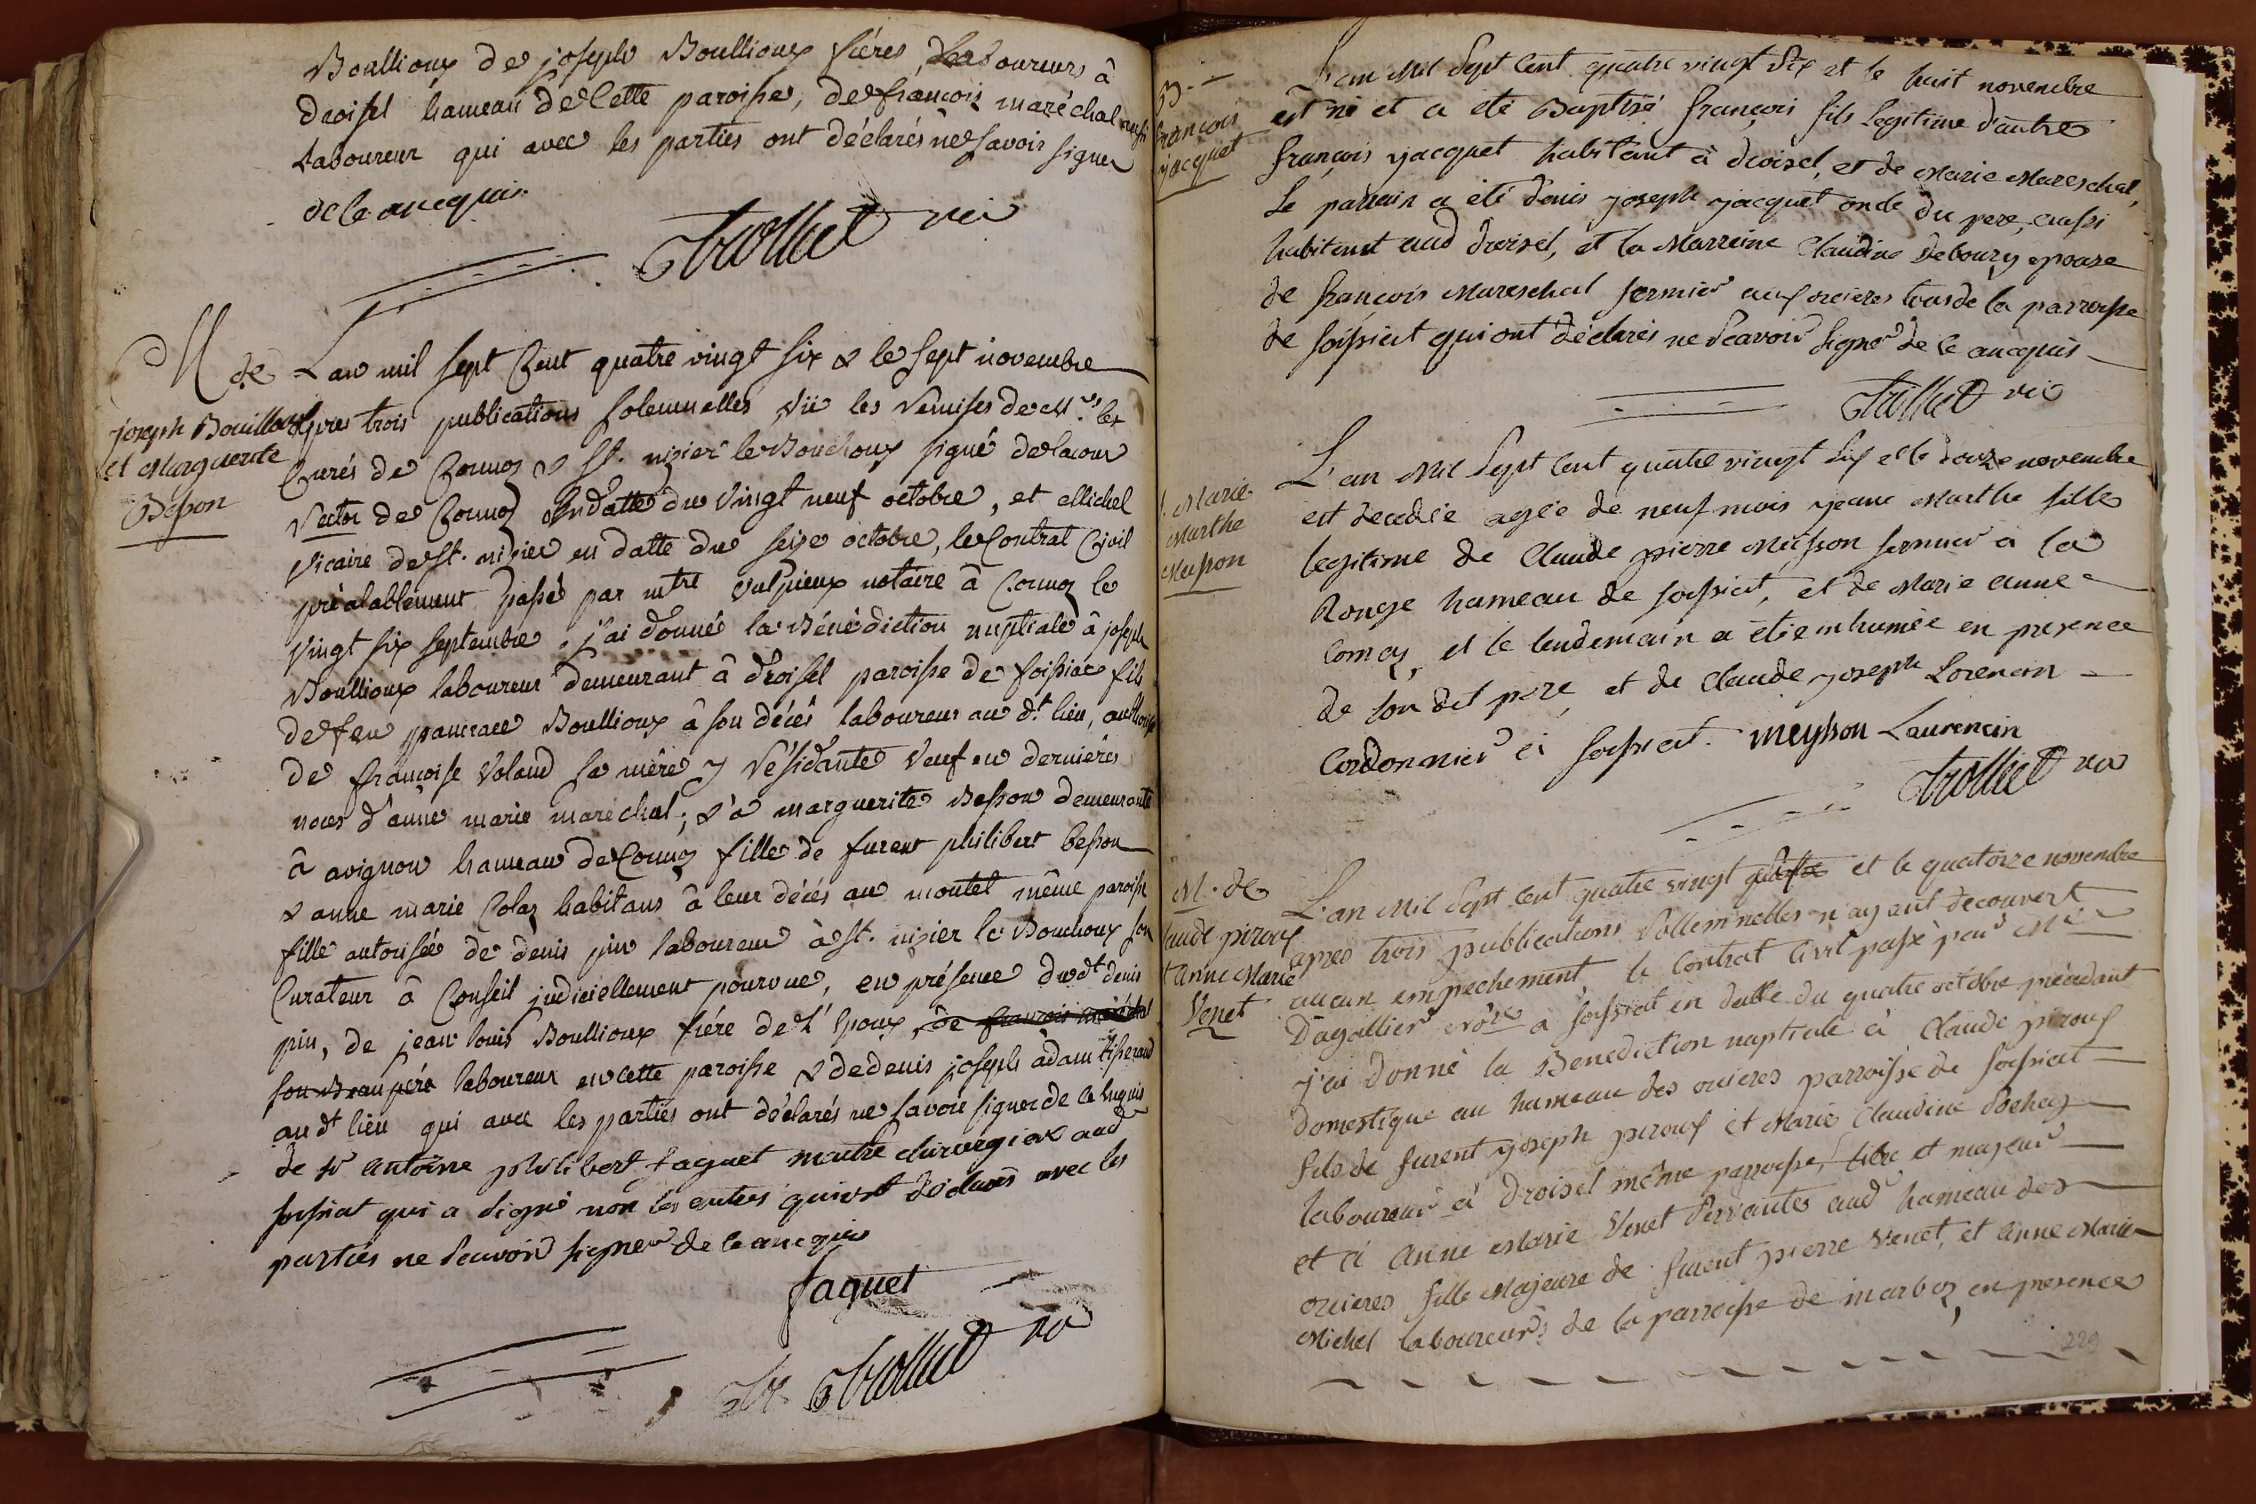 Boullioux de joseph Boullioux frères, laboureurs à
droisel hameau de Cette paroisse, de françois maréchal aussi
Laboureur qui avec les parties ont déclarés ne savoir signer
de ce enequis.
Trolliet vic
M de
joseph Bouilloux
et Marguerite
Besson
L'an mil sept Cent quatre vingt six & le sept novembre
après trois publications solemnelles vû les remises de Mrs les
Curés de Cormoz & St. nizier le Bouchoux signé delacour
Rector de Cormoz en datte du vingt neuf octobre, et Michel
vicaire de St. nizier en datte du seize octobre, le Contrat Civil
préalablement passé par mtre vulpieux notaire à Cormoz le
vingt six septembre, j'ai donnée la Bénédiction nuptiale à joseph
Boullioux laboureur demeurant à droisel paroisse de foissiac fils
de feu pancrace Boullioux à son décés laboureur au dt. lieu, authorisé
de françoise Voland sa mère y résidante veuf en dernières
noces d'anne marie maréchal; & à marguerite Besson demeurante
à avignon hameau de Cormoz fille de furent philibert besson
& anne marie Colas habitans à leur décés au montet même paroisse
fille autorisée de denis pin laboureur à St. nizier le Bouchoux son
Curateur à Conseil judiciellement pourvue, en présence du dt denis
pin, de jean louis Boullioux frère de l'époux, de françois maréchal
son Beau père laboureur en cette paroisse & de denis joseph adam tisserand
au dt lieu qui avec les parties ont déclarés ne savoir signer de ce enquis
de Sr Antoine philibert faguet maitre chirurgien aud
foissiat qui a signé non les autres qui ont déclarés avec les
parties ne scavoir signer de ce enequis
faguet
Trolliet vic
B.
françois
jacquet
L'an Mil Sept Cent quatre vingt Six et le huit novembre
est né et a été Baptisé françois fils Legitime d'autre
françois jacquet habitant à droisel, et de Marie Mareschal,
Le parrain a été denis joseph jacquet oncle du pere, aussi
habitant aud droisel, et la Marreine Claudine Debourg epouse
de françois Mareschal fermier aux orcieres tous de la parroisse
de foissiat qui ont déclarés ne Scavoir Signer de ce enequis
Trolliet vic
Marie
Marthe
Meysson
L'an Mil Sept Cent quatre vingt Six et le douze novembre
est decedée agée de neuf mois jeanne Marthe fille
legitime de Claude pierre Meysson fermier à la
Rouge hameau de foissiat, et de Marie Anne
Comas, et le lendemain a étée inhumée en presence
de son dit père, et de Claude joseph Lorencin
Cordonnier à foissiat. meysson Laurencin
Trolliet vic
M. de
Claude piroux
et Anne Marie
Venet
L'an Mil Sept Cent quatre vingt et le quatorze novembre
apres trois publications Sollemnelles n'ayant decouvert
aucun empechement, le Contrat Civil passé par Mre
Dagallier nore à foissiat en datte du quatre octobre précédant
j'ai donné la Benediction nuptiale à Claude piroux
domestique au hameau des orcieres parroisse de foissiat
fils de furent joseph piroux et Marie Claudine Pochaz
laboureur à droisel même parroisse, libre et majeur
et à Anne Marie Venet Servante aud hameau des
orcieres fille Majeure de furent pierre Venet, et Anne Marie
Michel laboureurs de la parroisse de marboz, en presence
229